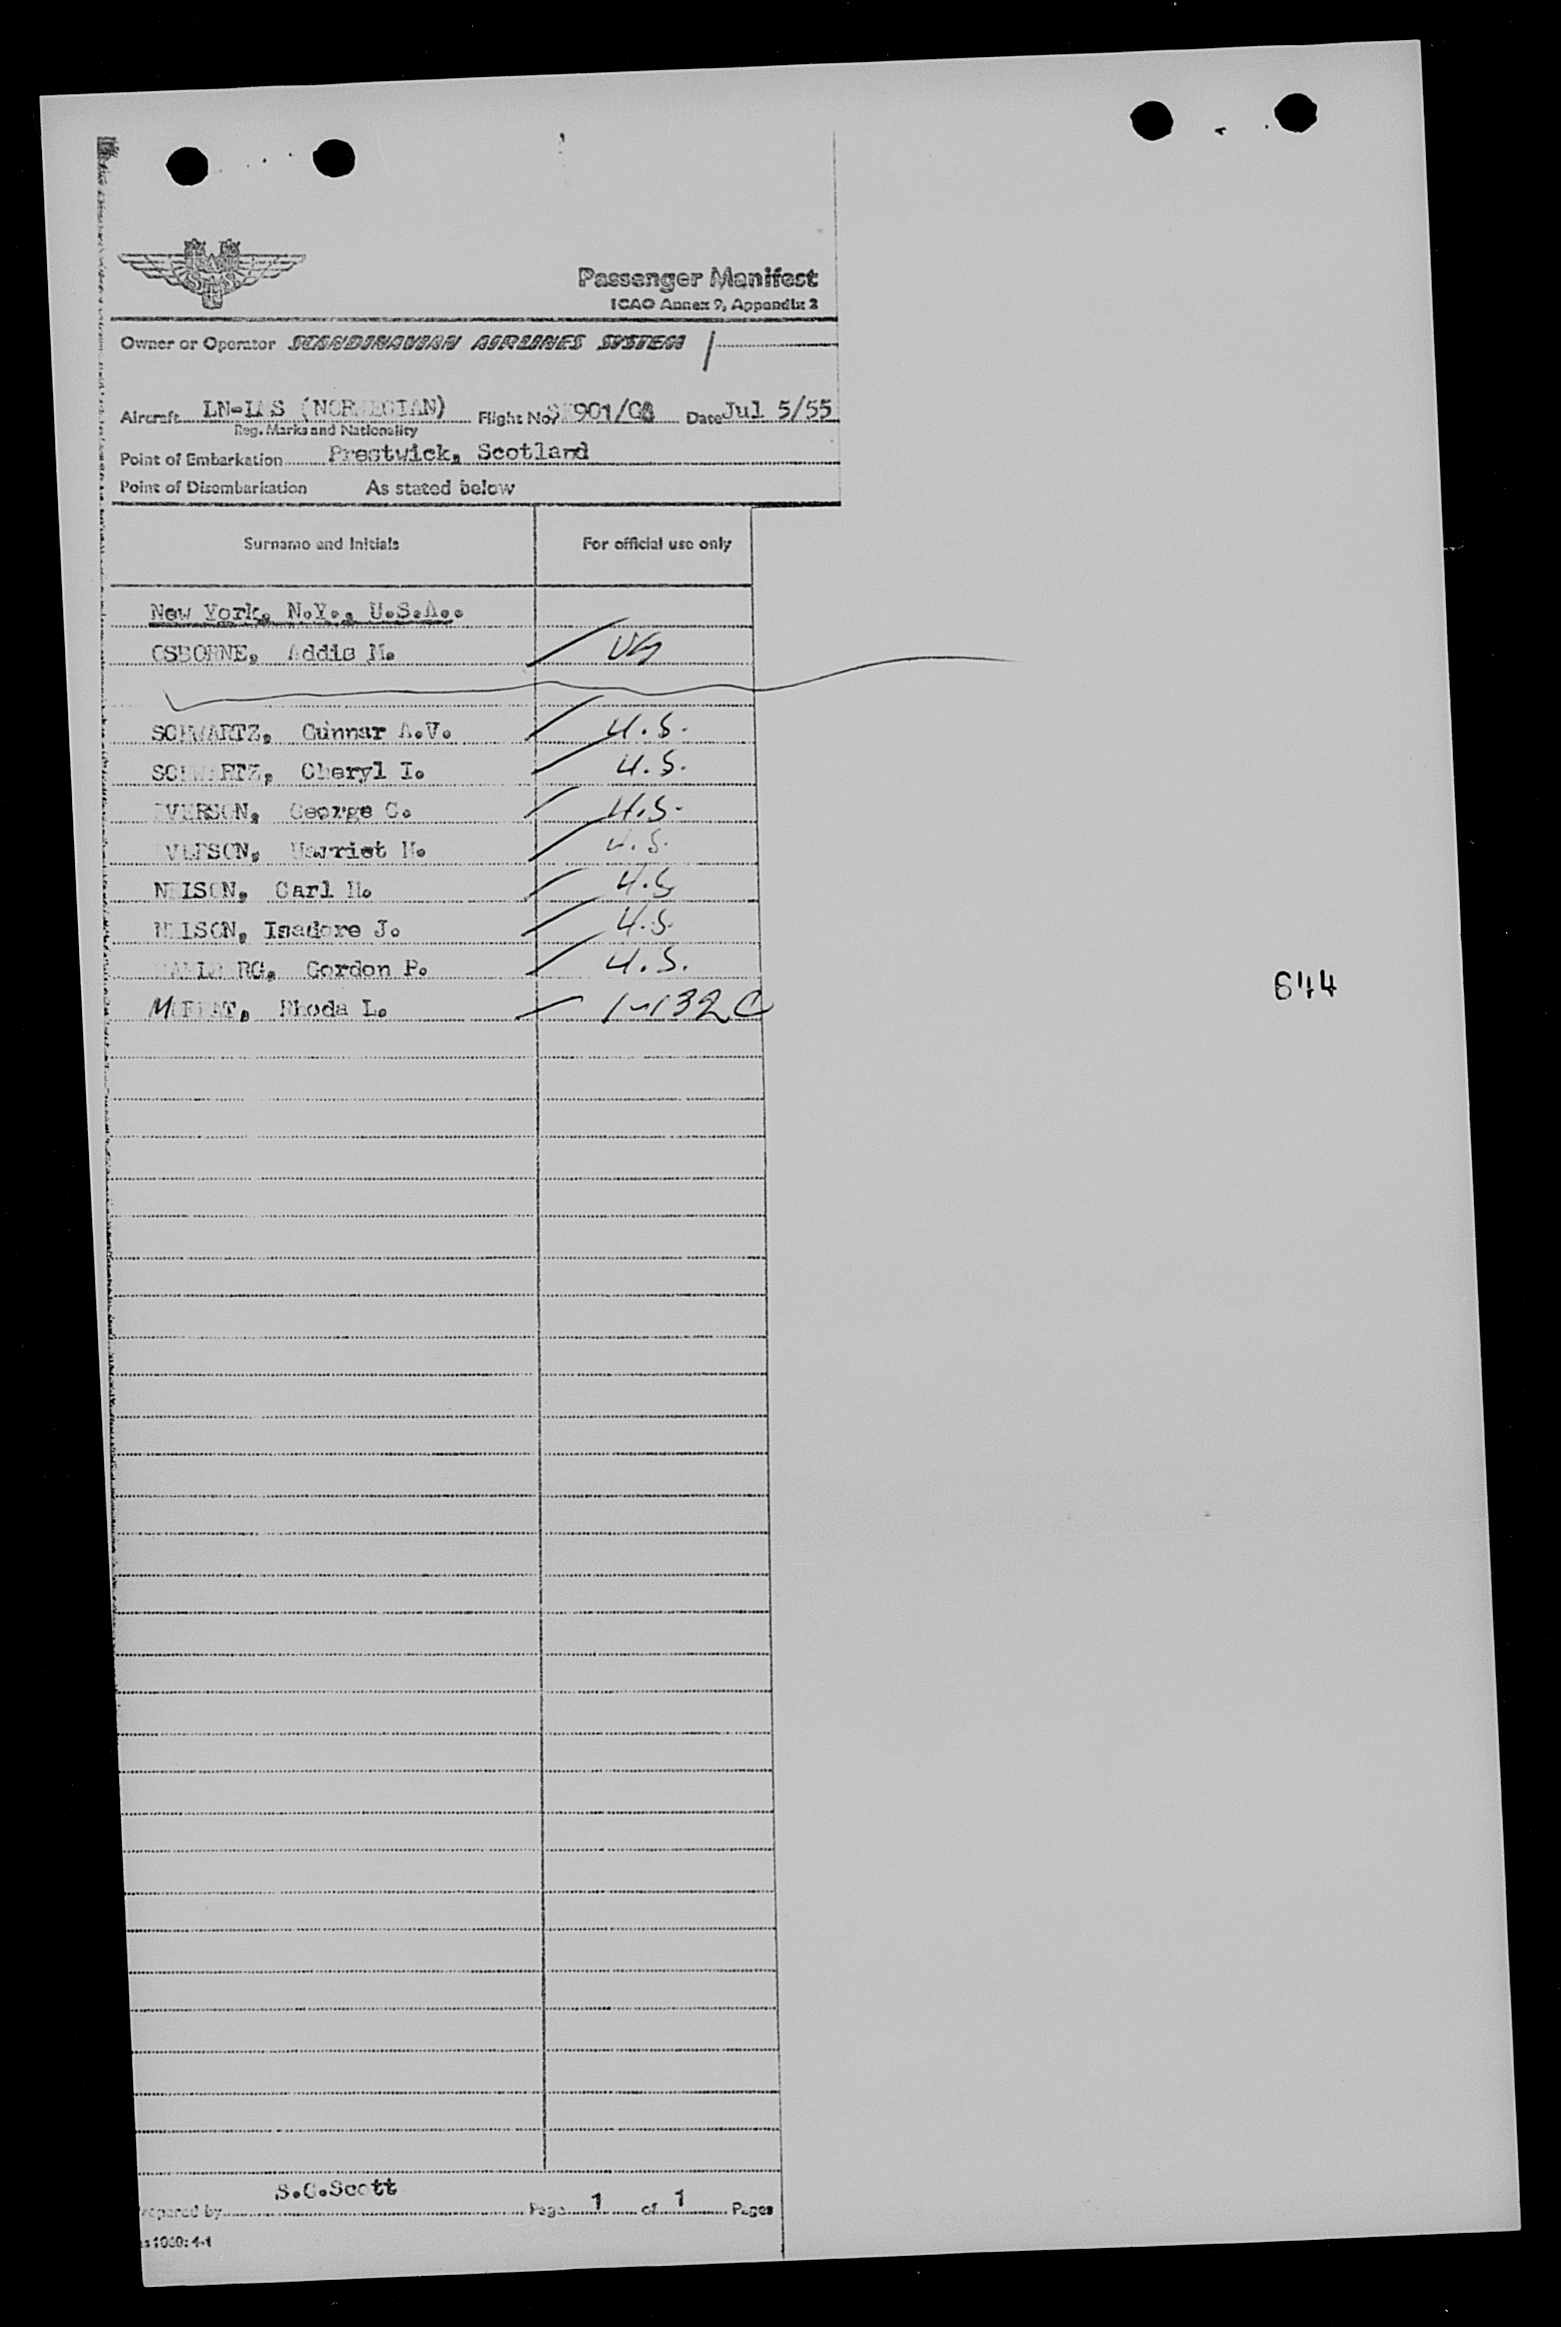 Passenger Manifest
ICAO Annex 9, Appendix 2
Owner or Operator SCANDINAVIAN AIRLINES SYSTEM
Aircraft LN-LAS (NORWEGIAN) Flight No. SK901/ Date Jul 5/55
Reg. Marks and Nationality
Point of Embarkation Prestwick, Scotland
Point of Disembarkation As stated below
Surname and Initials For official use only
New York, N.Y., U.S.A..
OSBORNE, Addie M. US
SCHWARTZ, Gunnar A.V. U.S.
SCHWARTZ, Cheryl I. U.S.
EVERSON, George C. U.S.
Harriet U.S.
NELSON, Carl U.S.
NELSON, Isadore J. U.S.
Gordon P. U.S.
644
Rhoda L. 1-132 C
S.C.Scott
Prepared by Page 1 of 1 Pages